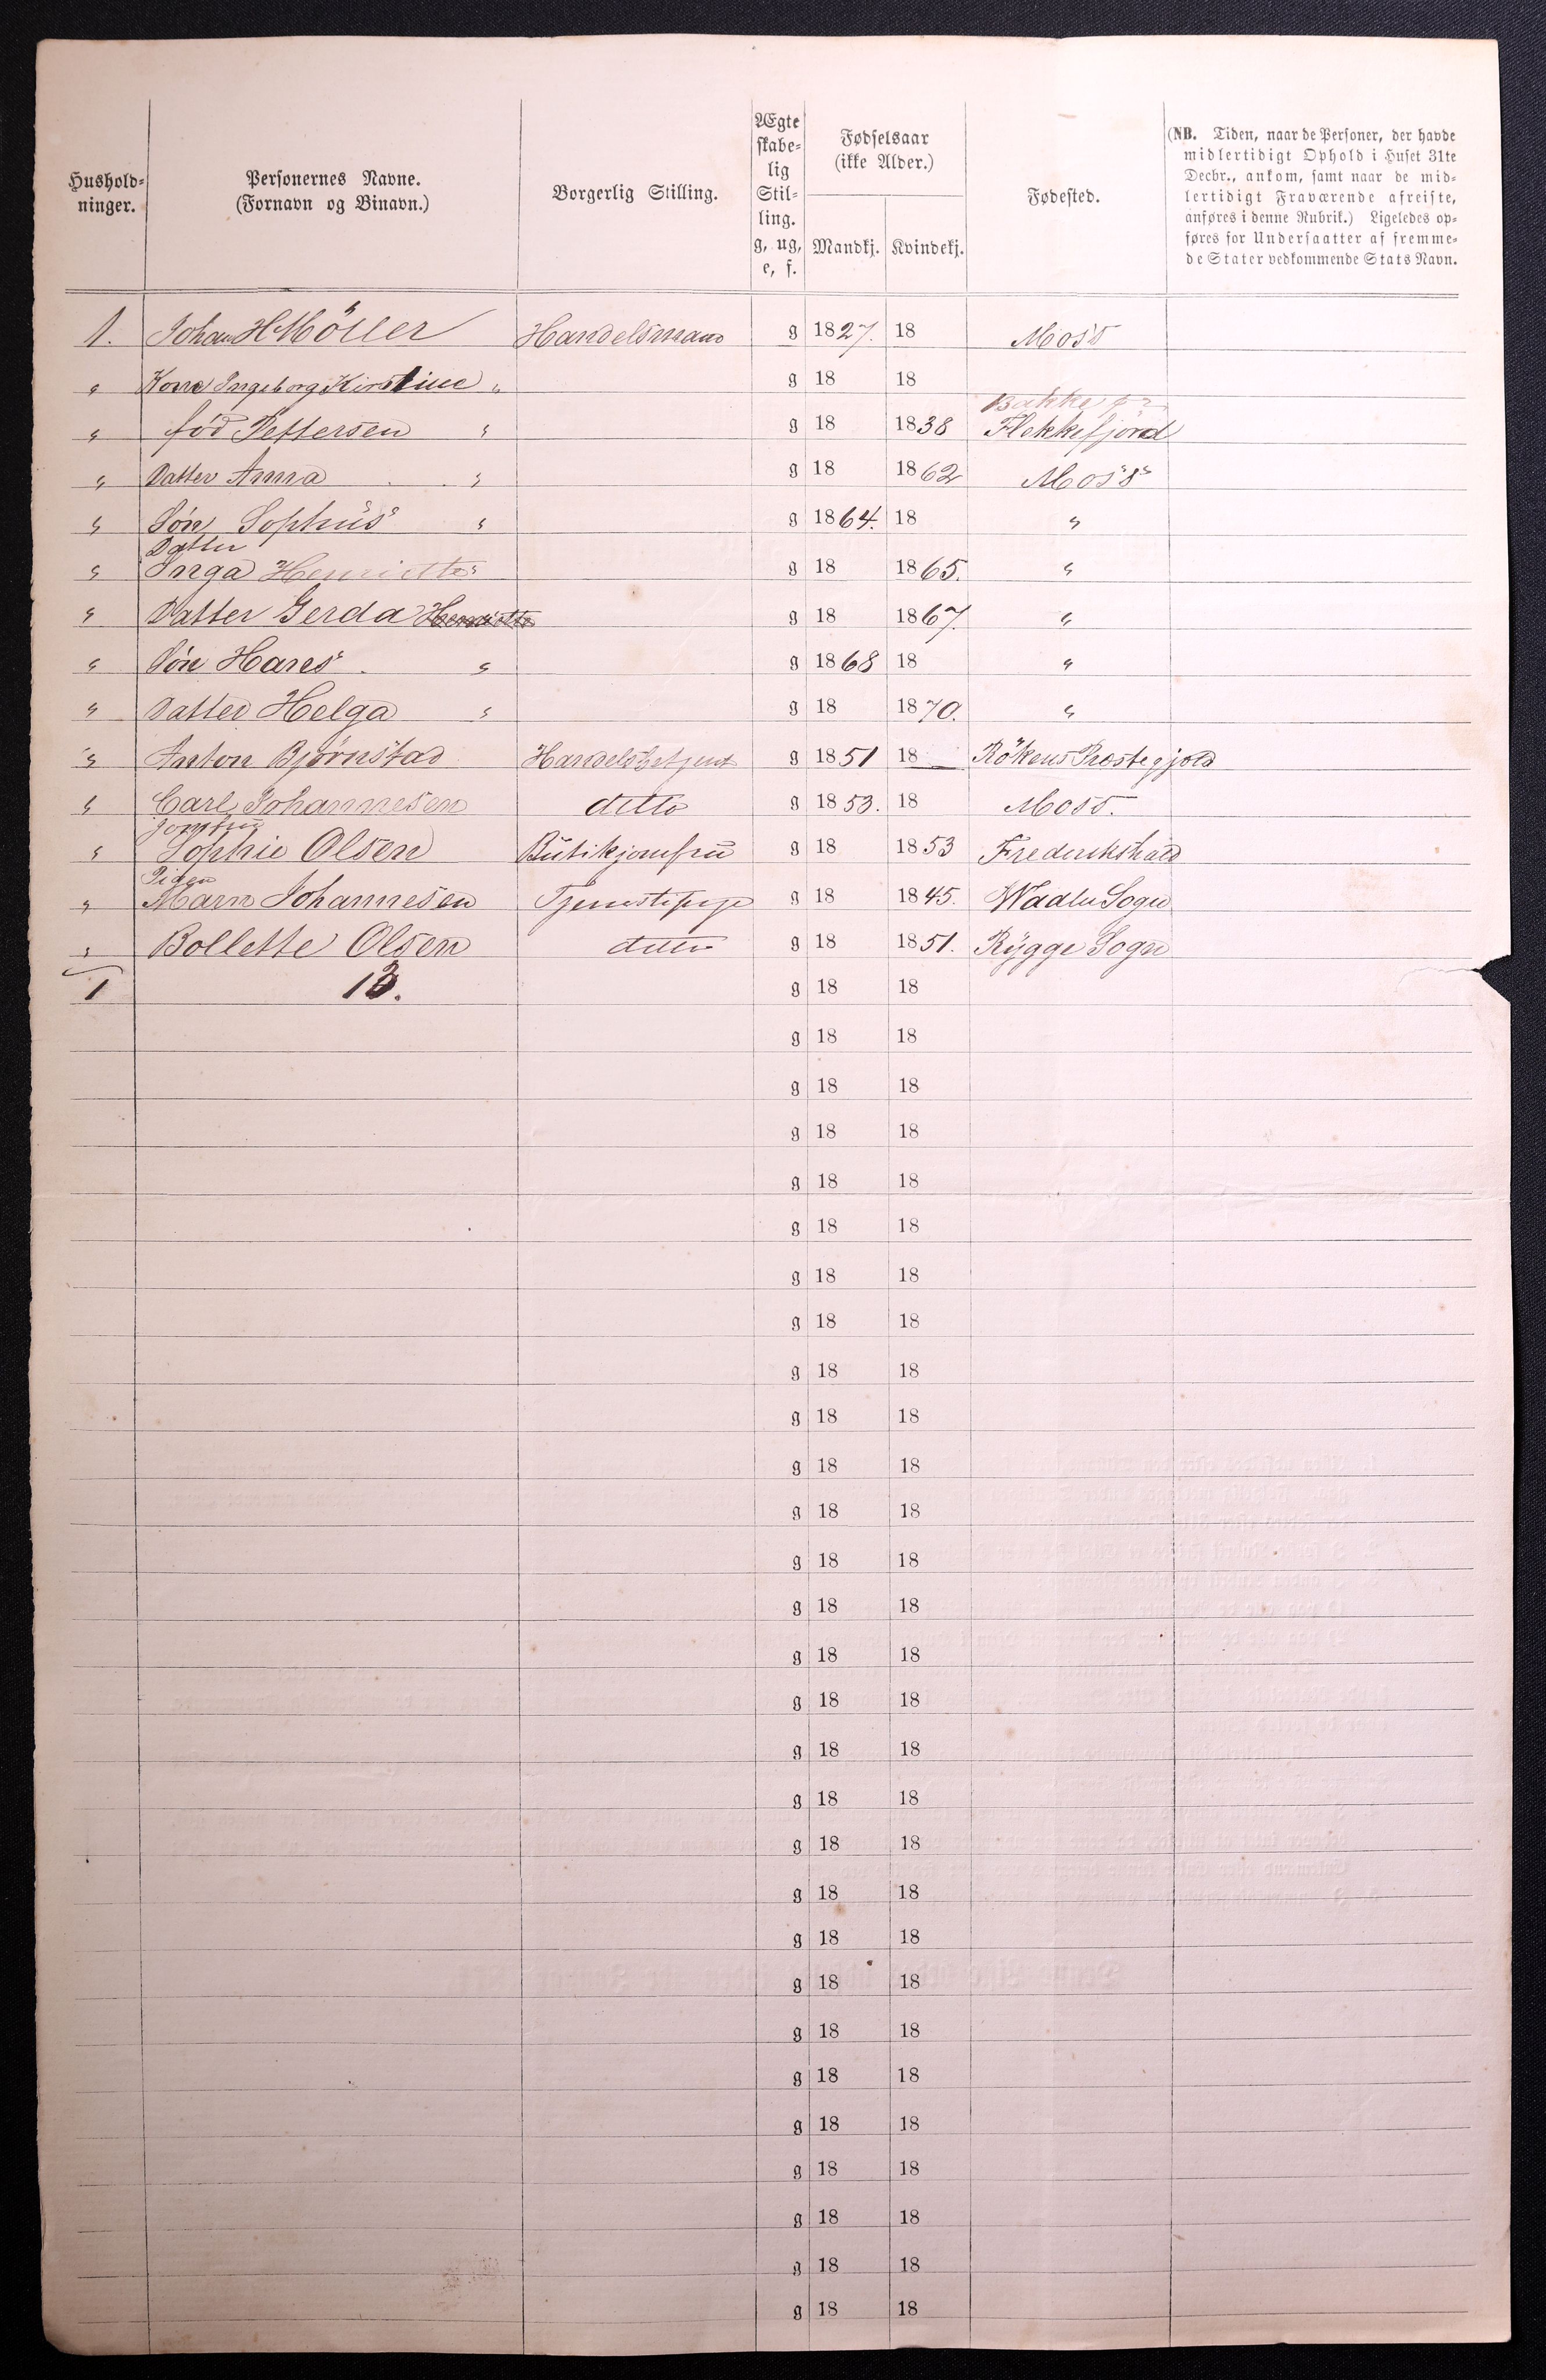 Hushold-
ninger.
Personernes Navne.
(Fornavn og Binavn.)
Borgerlig Stilling.
Ægte
skabe-
lig
Stil-
ling.
g, ug,
e, f.
Fødselsaar
(ikke Alder.)
Mandkj. Kvindekj.
Fødested.
(NB. Tiden, naar de Personer, der havde
midlertidigt Ophold i Huset 31te
Decbr., ankom, samt naar de mid-
lertidigt Fraværende afreiste,
anføres i denne Rubrik.) Ligeledes op-
føres for Undersaatter af fremme-
de Stater vedkommende Stats Navn.
1. Johan H Möller Handelsmann g 1827. 18 Moss
" Kone Ingeborg Kirstine " g 18 18
Bakke
" föd Pettersen " g 18 1838 Flekkefjord
" Datter Anna " g 18 1862 Moss
" Sön Sophus " g 1864. 18 "
Datter
" Inga Henriette " g 18 1865. "
" Datter Gerda Henriette g 18 1867. "
" Sön Hans " g 1868 18 "
" Datter Helga " g 18 1870. "
" Anton Bjørnstad Handelsbetjent g 1851 18 Rökens Præstegjeld
" Carl Johannesen ditto g 1853. 18 Moss.
Jomfru
" Sophie Olsen Butikjomfru g 18 1853 Frederikshald
Pigen
" Marn Johannesen Tjenestepige g 18 1845. Waaler Sogn
" Bollette Olsen ditto g 18 1851. Rygge Sogn
1 13. g 18 18
g 18 18
g 18 18
g 18 18
g 18 18
g 18 18
g 18 18
g 18 18
g 18 18
g 18 18
g 18 18
g 18 18
g 18 18
g 18 18
g 18 18
g 18 18
g 18 18
g 18 18
g 18 18
g 18 18
g 18 18
g 18 18
g 18 18
g 18 18
g 18 18
g 18 18
g 18 18
g 18 18
g 18 18